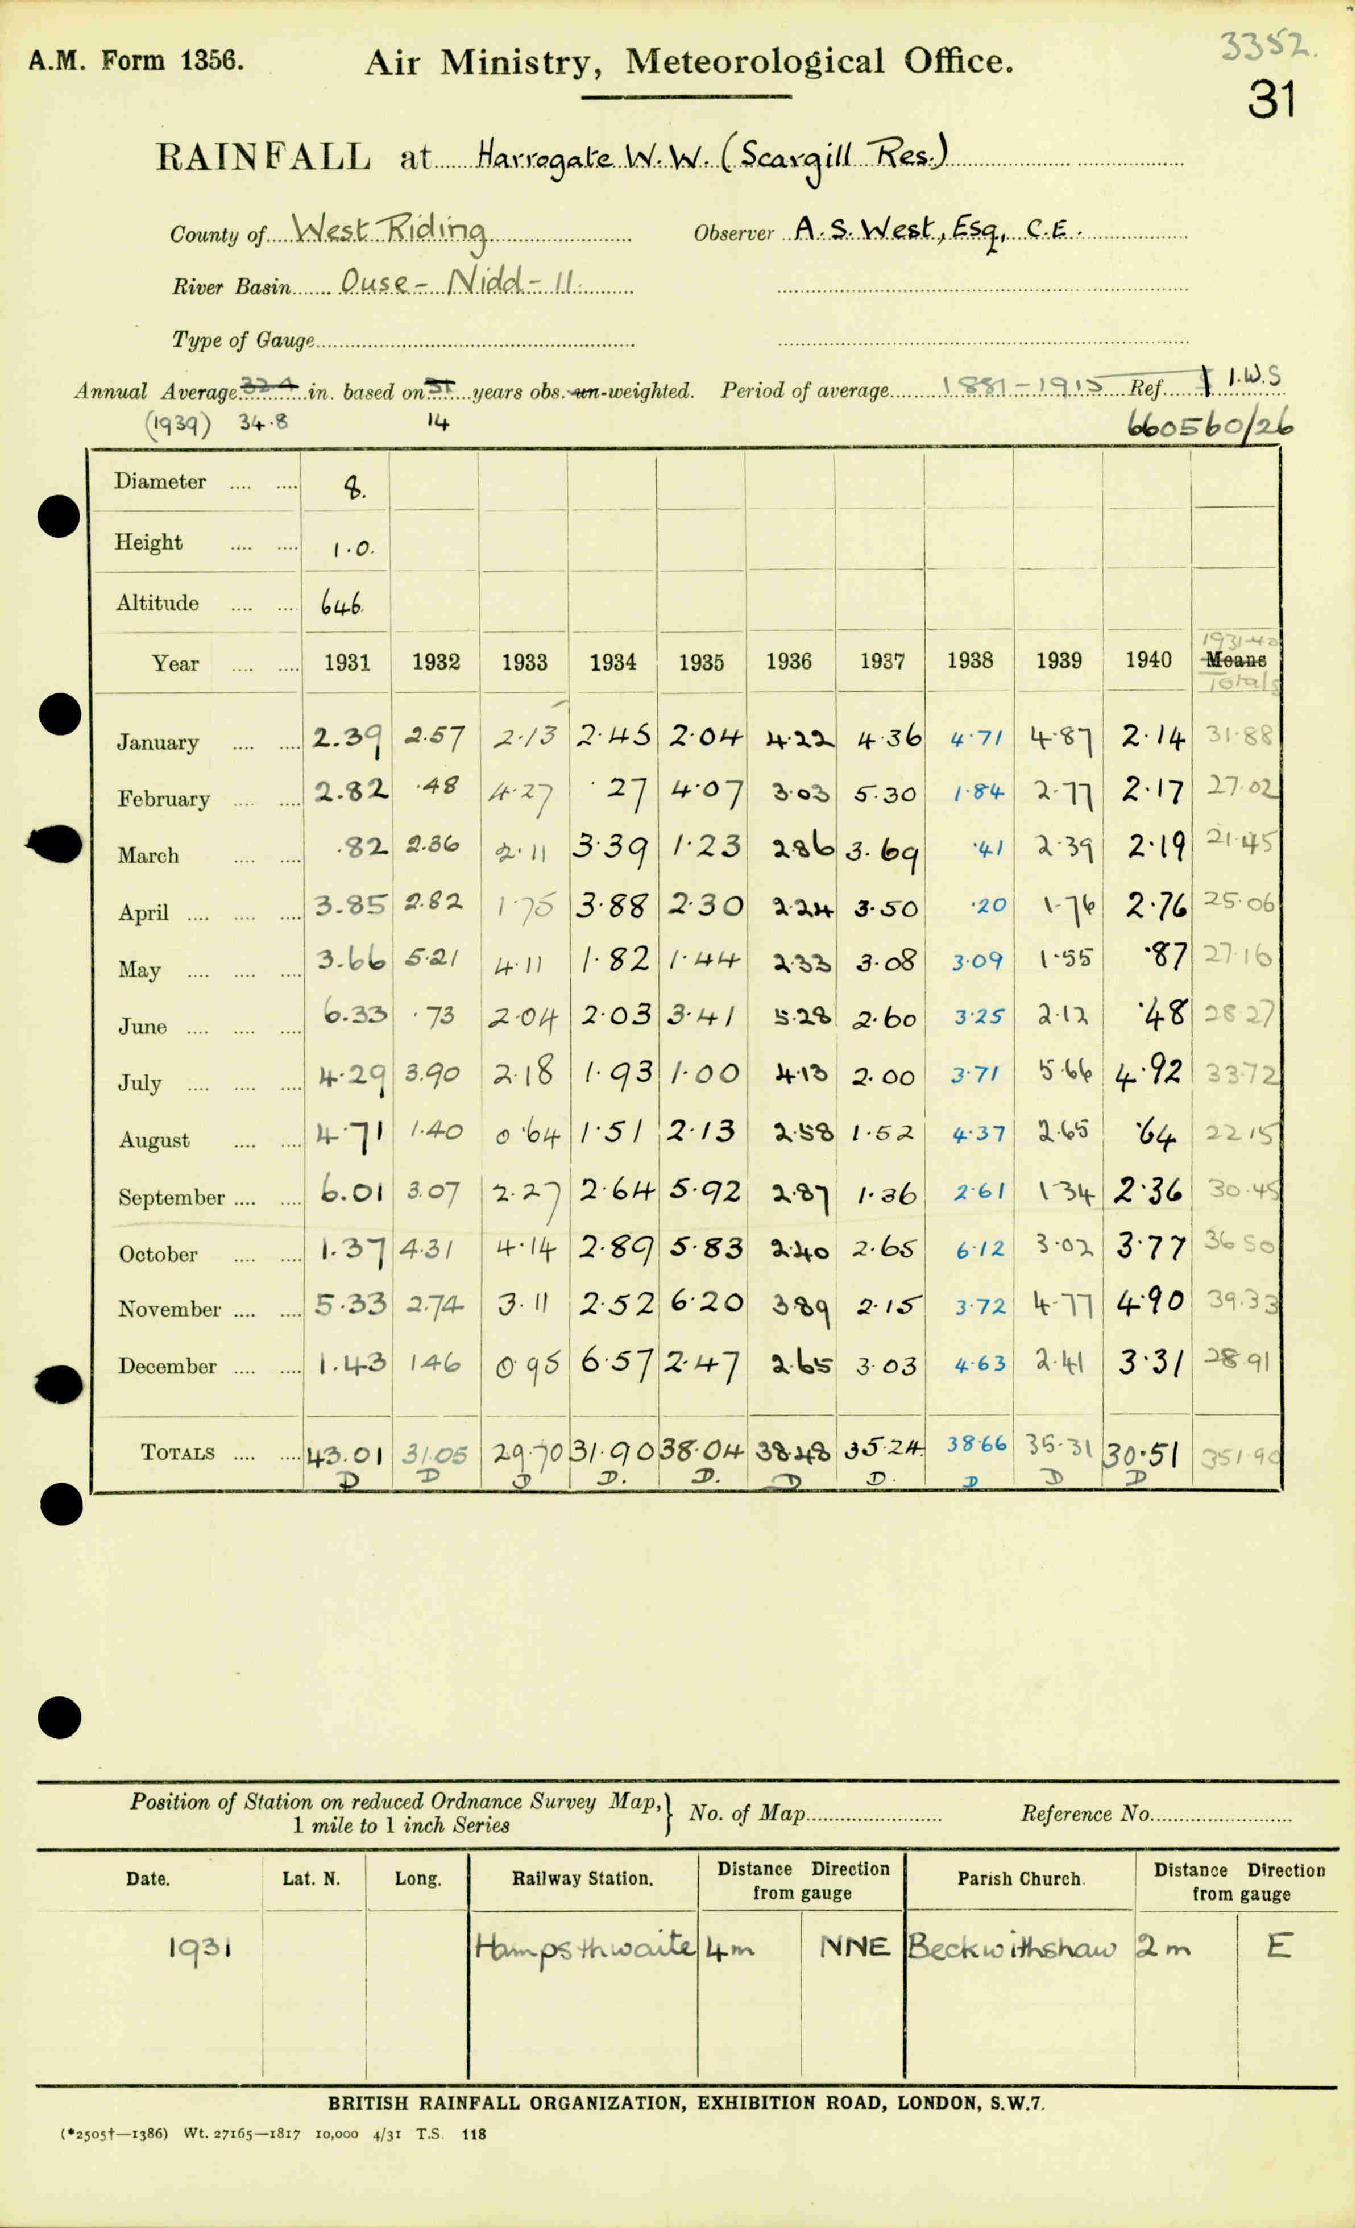 3352.
A.M. Form 1356. Air Ministry, Meteorological Office.
31
RAINFALL at Harrogate W.W. (Scargill Res.)
County of West Riding Observer A. S. West, Esq, C.E.
River Basin Ouse - Nidd - 11.
Type of Gauge
Annual Average 32.4 in. based on 31 years obs. un-weighted. Period of average 1881-1915 Ref. 1 I.W.S
(1939) 34.8 14 660560/26
Diameter 8.
Height 1.0.
Altitude 646.
1931-40
Year 1931 1932 1933 1934 1935 1936 1937 1938 1939 1940 Means
Totals
January 2.39 2.57 2.13 2.45 2.04 4.22 4.36 4.71 4.87 2.14 31.88
February 2.82 .48 4.27 .27 4.07 3.03 5.30 1.84 2.77 2.17 27.02
March .82 2.36 2.11 3.39 1.23 2.86 3.69 .41 2.39 2.19 21.45
April 3.85 2.82 1.75 3.88 2.30 2.24 3.50 .20 1.76 2.76 25.06
May 3.66 5.21 4.11 1.82 1.44 2.33 3.08 3.09 1.55 .87 27.16
June 6.33 .73 2.04 2.03 3.41 5.28 2.60 3.25 2.12 .48 28.27
July 4.29 3.90 2.18 1.93 1.00 4.13 2.00 3.71 5.66 4.92 33.72
August 4.71 1.40 0.64 1.51 2.13 2.58 1.52 4.37 2.65 .64 22.15
September 6.01 3.07 2.27 2.64 5.92 2.87 1.36 2.61 1.34 2.36 30.45
October 1.37 4.31 4.14 2.89 5.83 2.40 2.65 6.12 3.02 3.77 36.50
November 5.33 2.74 3.11 2.52 6.20 3.89 2.15 3.72 4.77 4.90 39.33
December 1.43 1.46 0.95 6.57 2.47 2.65 3.03 4.63 2.41 3.31 28.91
TOTALS 43.01 31.05 29.70 31.90 38.04 38.48 35.24 38.66 35.31 30.51 351.90
D D D D. D. D D. D D D
Position of Station on reduced Ordnance Survey Map, } No. of Map Reference No.
1 mile to 1 inch Series
Date. Lat. N. Long. Railway Station. Distance Direction Parish Church. Distance Direction
from gauge from gauge
1931 Hampsthwaite 4m NNE Beckwithshaw 2m E
BRITISH RAINFALL ORGANIZATION, EXHIBITION ROAD, LONDON, S.W.7.
(*2505†—1386) Wt. 27165—1817 10,000 4/31 T.S. 118